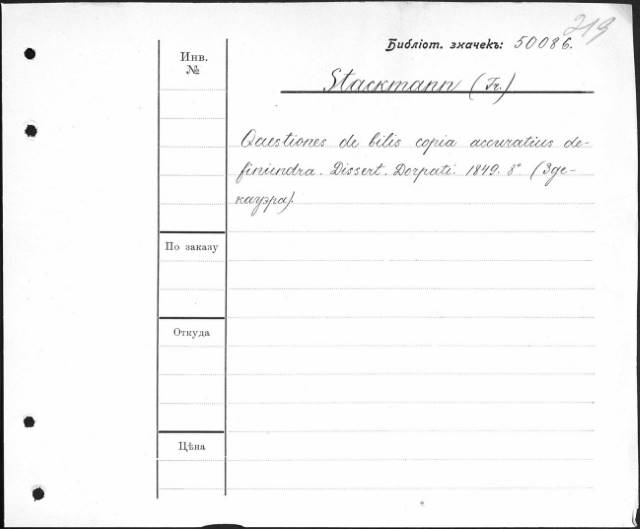 219
Библіот. значекъ: 50086.
Инв.
№
Stackmann (Fr.)
Quaestiones de bilis copia accuratius de-
finiendra. Dissert. Dorpati. 1849. 8°. (Зде-
кауэра).
По заказу
Откуда
Цѣна